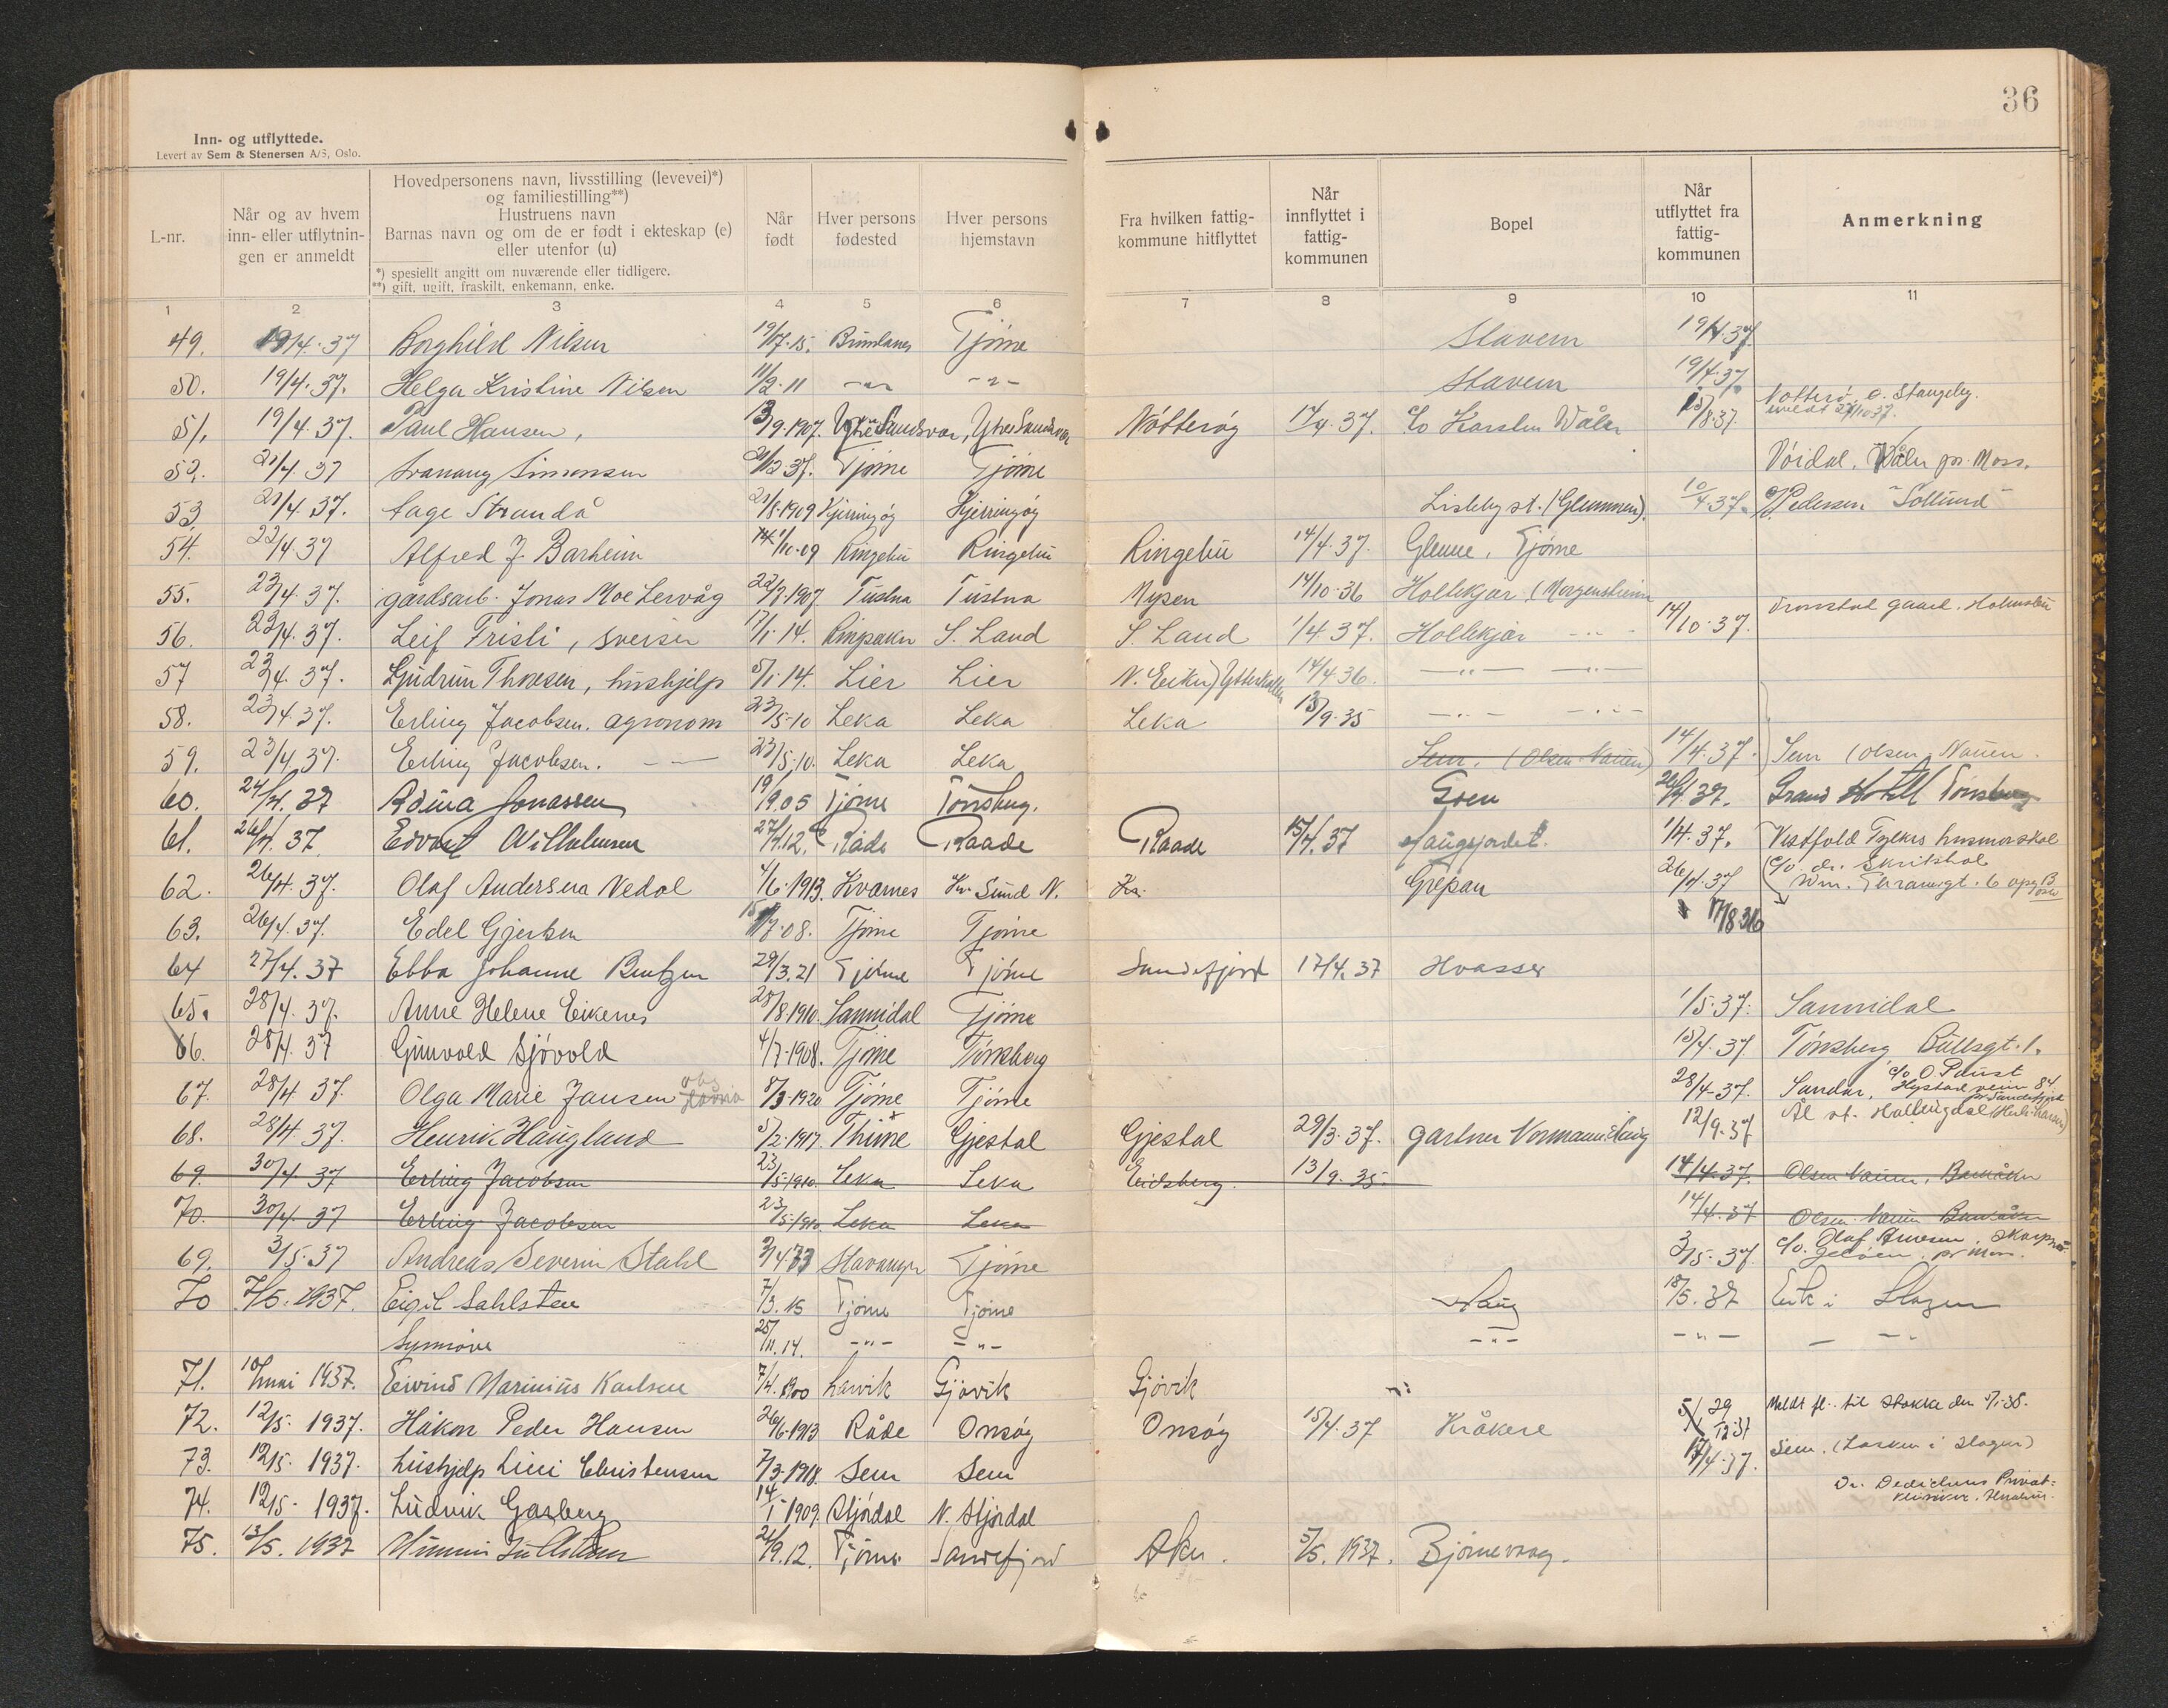 36
Inn- og utflyttede.
Levert av Sem & Stenersen A/S, Oslo.
L-nr.
Når og av hvem
inn- eller utflytnin-
gen er anmeldt
Hovedpersonens navn, livsstilling (levevei)*)
og familiestilling**)
Hustruens navn
Barnas navn og om de er født i ekteskap (e)
eller utenfor (u)
*) spesiellt angitt om nuværende eller tidligere.
**) gift, ugift, fraskilt, enkemann, enke.
Når
født
Hver persons
fødested
Hver persons
hjemstavn
Fra hvilken fattig-
kommune hitflyttet
Når
innflyttet i
fattig-
kommunen
Bopel
Når
utflyttet fra
fattig-
kommunen
Anmerkning
1 2 3 4 5 6 7 8 9 10 11
49. 19/4.37 Borghild Nilsen 19/7.15. Brunlanes Tjøme Stavern 19/4.37
50. 19/4.37. Helga Kristine Nilsen 11/2.11 -"- -"- Stavern 19/4.37.
51. 19/4.37. Paul Hansen, 13/9.1907. Ytre Sandsvær, Ytre Sandsvær Nøtterøy 17/4.37. c/o Karsten Wåler 15/8.37. Nøtterø, O. Stangeby.
52. 21/4.37 Svanaug Simonsen 21/12.37. Tjøme Tjøme Vøidal, Våler pr. Moss.
53. 21/4.37. Aage Strandå 21/8.1909 Kjerringøy Kjerringøy Lisleby st. (Glemmen). 10/4.37. c/o Pedersen "Sollund"
54. 22/4.37 Alfred J. Barheim 1/10.09 Ringebu Ringebu Ringebu 14/4.37. Glenne, Tjøme
55. 23/4.37. gårdsarb. Jonas Moe Lervåg 22/7.1907 Tustna Tustna Mysen 14/10.36 Hollekjær (Morgenstierne
56. 23/4.37. Leif Fristi, sveiser 17/1.14. S. Land S. Land 1/4.37. Hollekjær -"- 14/10.37. gaard. Holmsbu
57 23/4.37. Gudrun Thoresen, hushjelp 5/1.14. Lier Lier N. Eiker) 14/4.36. -"- -"-
58. 23/4.37. Erling Jacobsen. agronom 23/5.10 Leka Leka Leka 13/9.35 -"- -"-
59. 23/4.37. Erling Jacobsen. -- 23/5.10. Leka Leka Sem. (Olsen Nauen) 14/4.37. Sem (Olsen, Nauen.
60. 24/4.37 Adina Jonassen 19/9.05 Tjøme Tønsberg. Goen 26/4.37. Grand Hotell Tønsberg
61. 26/4.37. Edvart Wilhelmsen 27/4.12. Råde Raade Raade 15/4.37 Haugjordet. 1/4.37. Vestfold Fylkes husmorskole
62. 26/4.37. Olaf Andersen Vedal 4/6.1913. Kvernes Kr. Sund N. Kr. Grepan 26/4.37 c/o. dr.
63. 26/4.37. Edel Gjertsen 7.08. Tjøme Tjøme 17/8 36
64 27/4.37 Ebba Johanne Bentzen 29/3.21 Tjøme Tjøme Sandefjord 17/4.37 Hvasser
65. 28/4.37. Anne Helene Eikenes 28/8.1910. Sannidal Tjøme 1/5.37. Sannidal
66. 28/4.37 Gunvald Sjøvold 4/7.1908. Tjøme Tønsberg 15/4.37 Tønsberg Bullsgt. 1.
67. 28/4 37. Olga Marie Jansen 8/3.1920 Tjøme Tjøme 28/4.37. Sandar, c/o O. Paust Hystadveien 84. pr Sandefjord
68. 28/4.37. Henrik Haugland 5/2.1917. Thime Gjestal Gjestal 29/3.37. gartner Normann Haug 12/9.37 Ål st. Hallingdal
69. 30/4 37 Erling Jacobsen 23/5.1910. Leka Leka Eidsberg. 13/9.35 14/4.37. Olsen Nauen, Barkåker
70. 30/4.37 Erling Jacobsen 23/5.1910. Leka Leka 14/4.37 Olsen Nauen Barkåker
69. 3/5.37 Andreas Severin Stahl 3/4 73 Stavanger Tjøme 3/5.37. c/o. Olaf Arnesen, Jeløen pr Moss.
70 7/5.1937. Eigil Sahlsten 7/3.15 Tjøme Tjøme Haug 18/5.37 Eik i Slagen
Synnøve 25/11.14. -"- -"- -"- -"- -"-
71. 10/mai 1937. Eivind Marinius Karlsen 7/4.1900 Larvik Gjøvik Gjøvik
72. 12/5.1937. Håkon Peder Hansen 26/6.1913 Råde Onsøy Onsøy 15/4.37 Kråkere 29/12.37 Meldt fl. til Stokke den 5/1.38.
73. 12/5.1937. hushjelp Lucci Christensen 7/3.1918. Sem Sem 17/4.37. Sem. (Løsken i Slagen)
74. 12/5.1937. Ludvik Gasberg 14/1 1909. Stjørdal N. Stjørdal Dr. Dedichens Privat-
75. 13/5.1937 21/9.12. Tjøme Sandefjord Aker. 5/5.1937. Bjørnevaag.